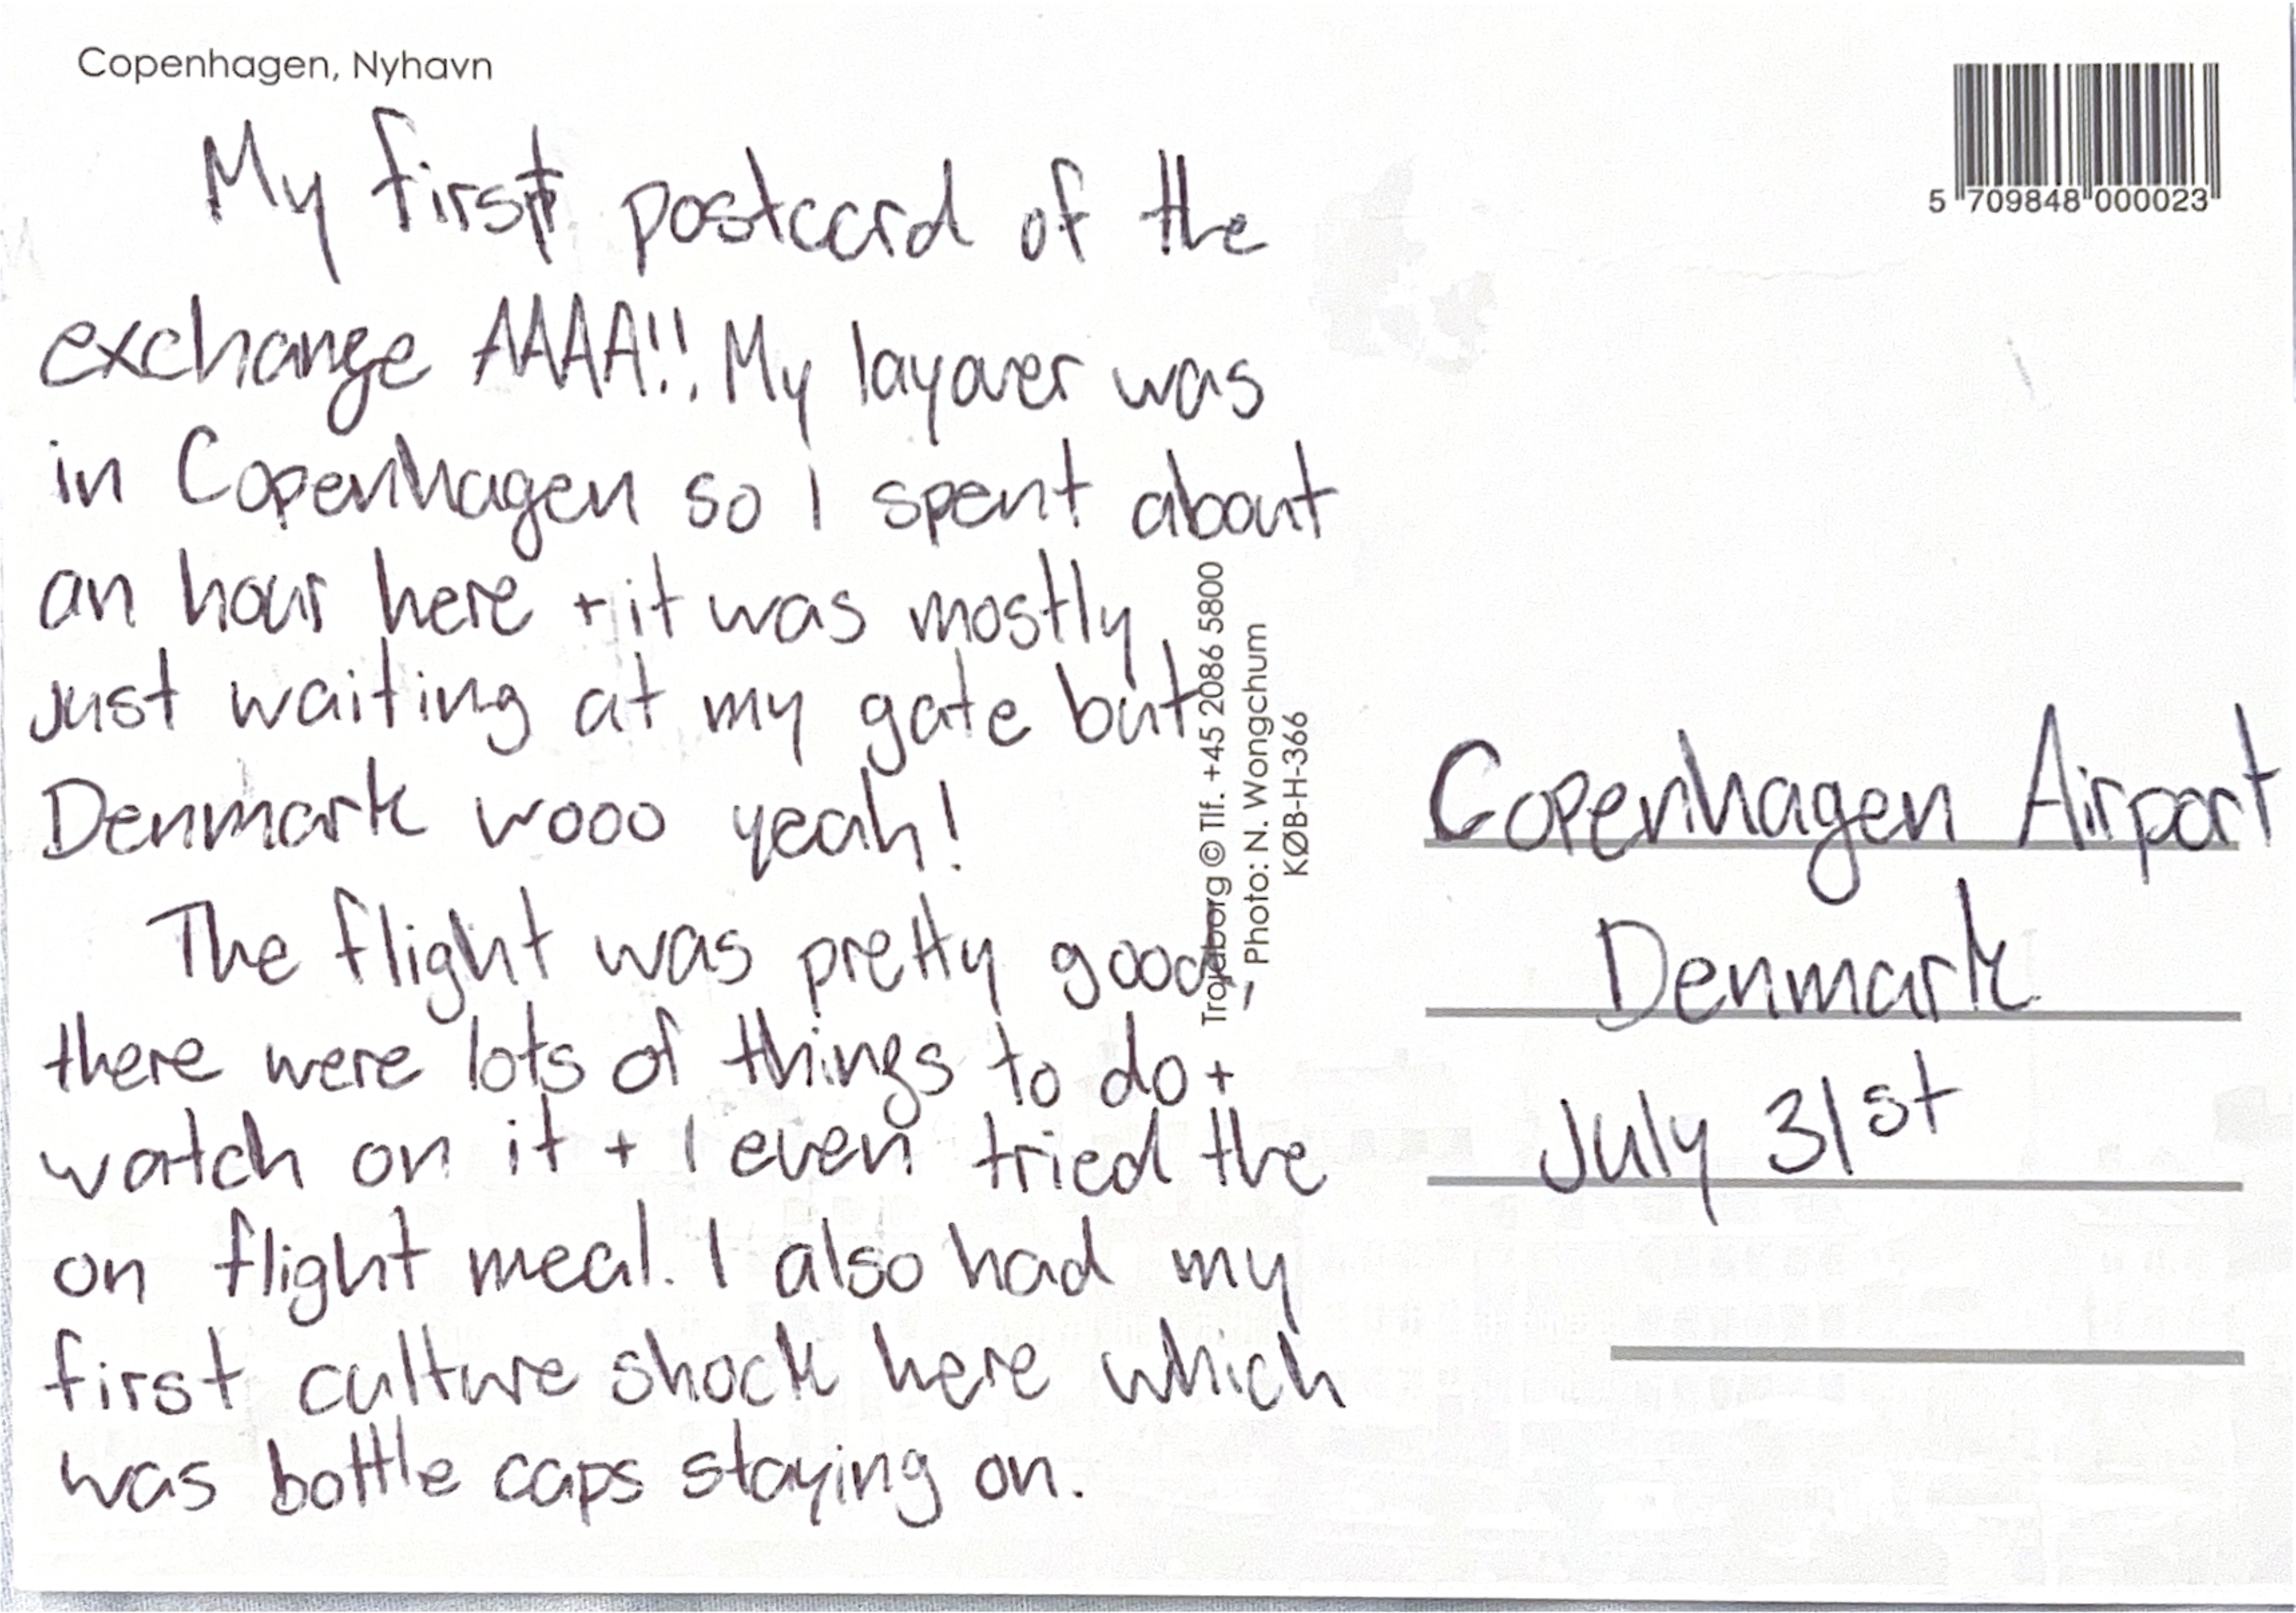 Copenhagen, Nyhavn
5 709848 000023
My first postcard of the
exchange AAAA!!. My layover was
in Copenhagen so I spent about
an hour here + it was mostly
just waiting at my gate but
Denmark wooo yeah!
The flight was pretty good,
there were lots of things to do +
watch on it + I even tried the
on flight meal. I also had my
first culture shock here which
was bottle caps staying on.
Trojaborg © Tlf. +45 2086 5800
Photo: N. Wongchum
KØB-H-366
Copenhagen Airport
Denmark
July 31st